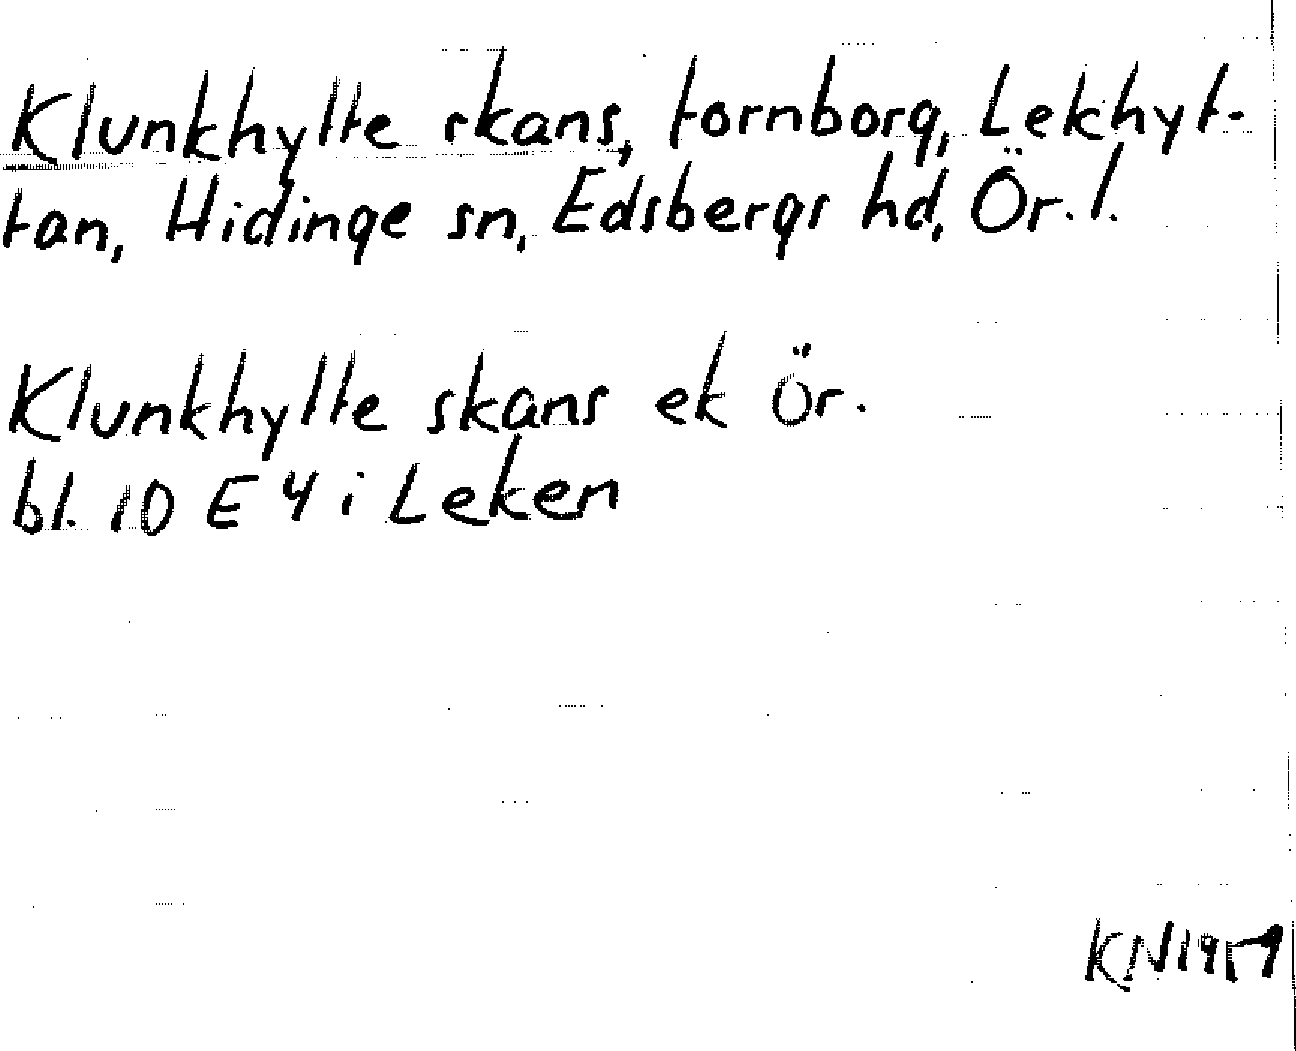 Klunkhytte skans, fornborg, Lekhyt-
tan, Hidinge sn, Edsbergs hd, Ör. l.
Klunkhytte skans ek Ör.
bl. 10 E 4 i Leken